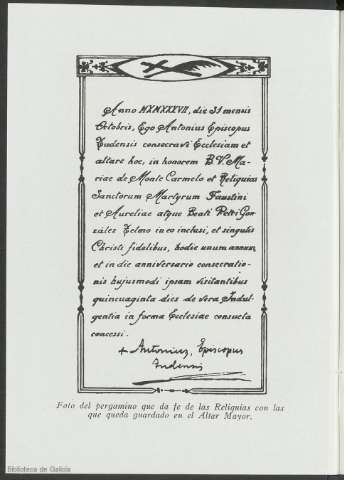 Anno MXMXXXVII, die 31 mensis
Octobris, Ego Antonius Episcopus
Tudensis consecravi Ecclesiam et
altare hoc, in honorem B. V. Ma-
riae de Monte Carmelo et Reliquias
Sanctorum Martyrum Faustini
et Aureliae atque Beati Petri Gon-
zález Telmo in eo inclusi, et singulis
Christi fidelibus, hodie unum annum
et in die anniversario consecratio-
nis hujusmodi ipsam visitantibus
quincuaginta dies de vera Indul-
gentia in forma Ecclesiae consueta
concessi.
+ Antonius, Episcopus
Tudensis
Foto del pergamino que da fe de las Reliquias con las
que queda guardado en el Altar Mayor.
Biblioteca de Galicia